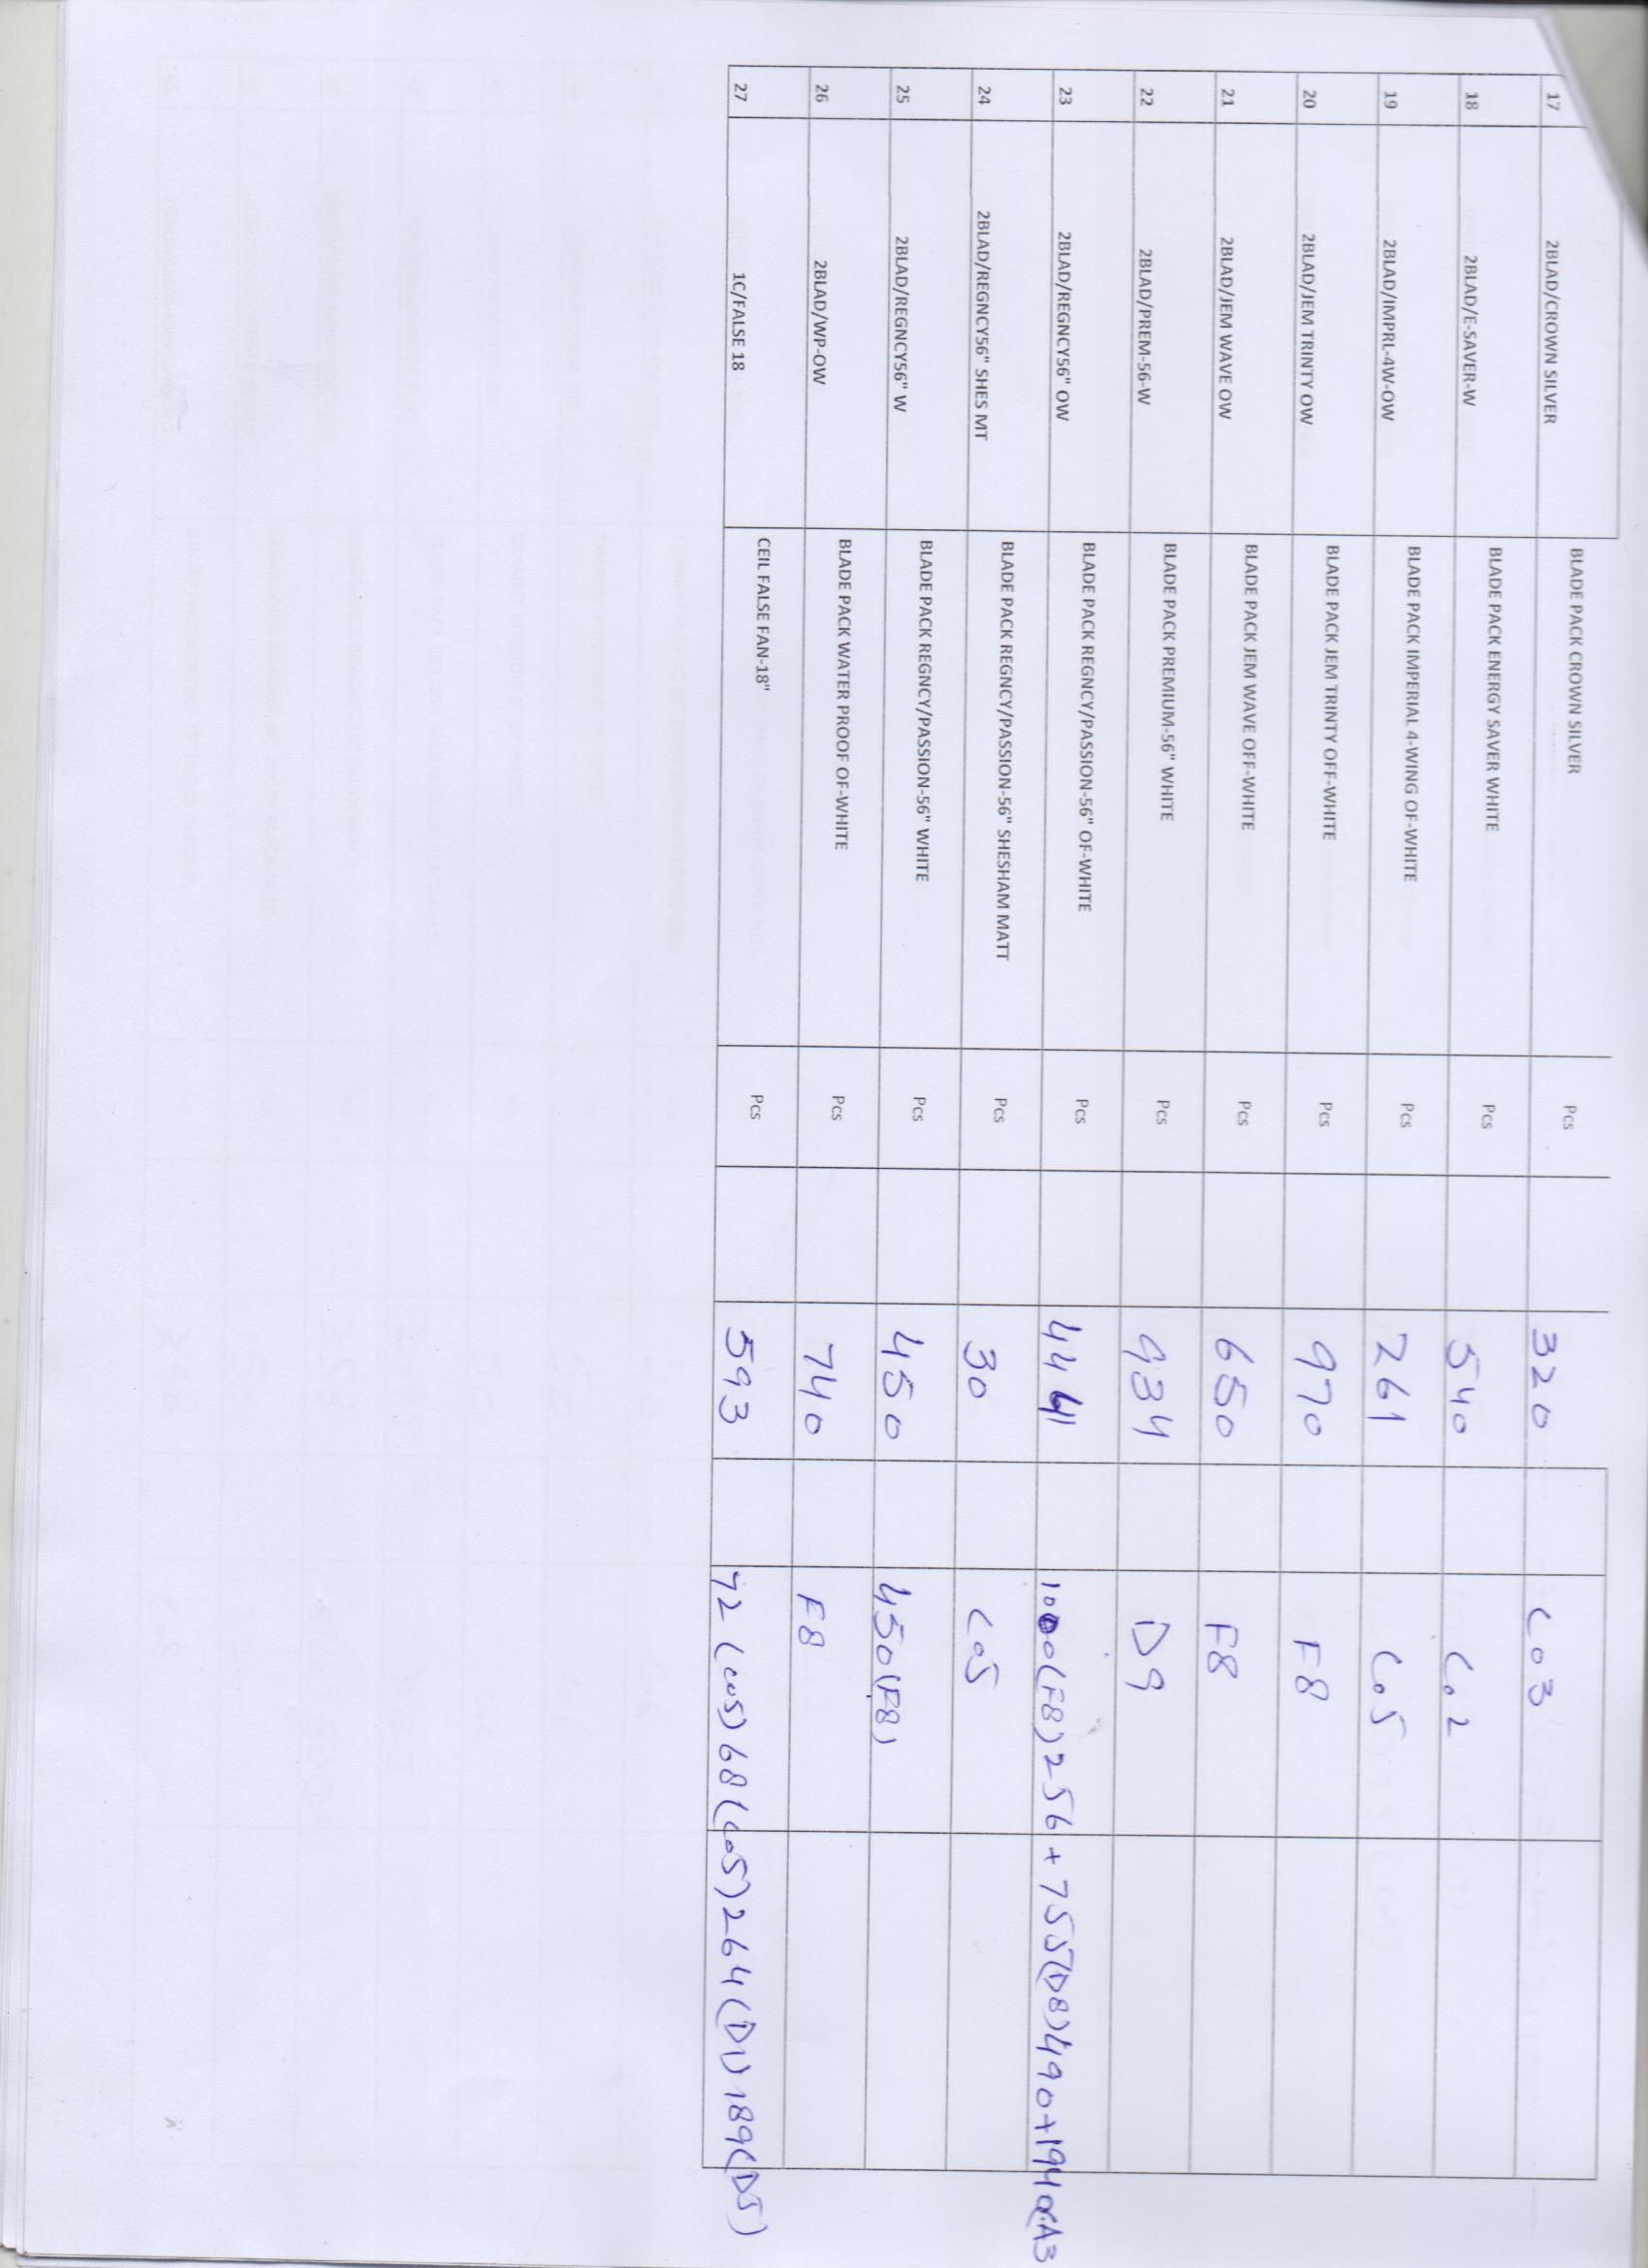 17 2BLAD/CROWN SILVER BLADE PACK CROWN SILVER Pcs 320 Co3
18 2BLAD/E-SAVER-W BLADE PACK ENERGY SAVER WHITE Pcs 540 Co2
19 2BLAD/IMPRL-4W-OW BLADE PACK IMPERIAL 4-WING OF-WHITE Pcs 261 Co5
20 2BLAD/JEM TRINTY OW BLADE PACK JEM TRINTY OFF-WHITE Pcs 970 F8
21 2BLAD/JEM WAVE OW BLADE PACK JEM WAVE OFF-WHITE Pcs 650 F8
22 2BLAD/PREM-56-W BLADE PACK PREMIUM-56" WHITE Pcs 934 D9
23 2BLAD/REGNCY56" OW BLADE PACK REGNCY/PASSION-56" OF-WHITE Pcs 4441 1000(F8)256 + 755(D8)490+1940 A3
24 2BLAD/REGNCY56" SHES MT BLADE PACK REGNCY/PASSION-56" SHESHAM MATT Pcs 30 Co5
25 2BLAD/REGNCY56" W BLADE PACK REGNCY/PASSION-56" WHITE Pcs 450 450(F8)
26 2BLAD/WP-OW BLADE PACK WATER PROOF OF-WHITE Pcs 740 F8
27 1C/FALSE 18 CEIL FALSE FAN-18" Pcs 593 72 (co5) 68 (co5) 264 (D1) 189 (D5)